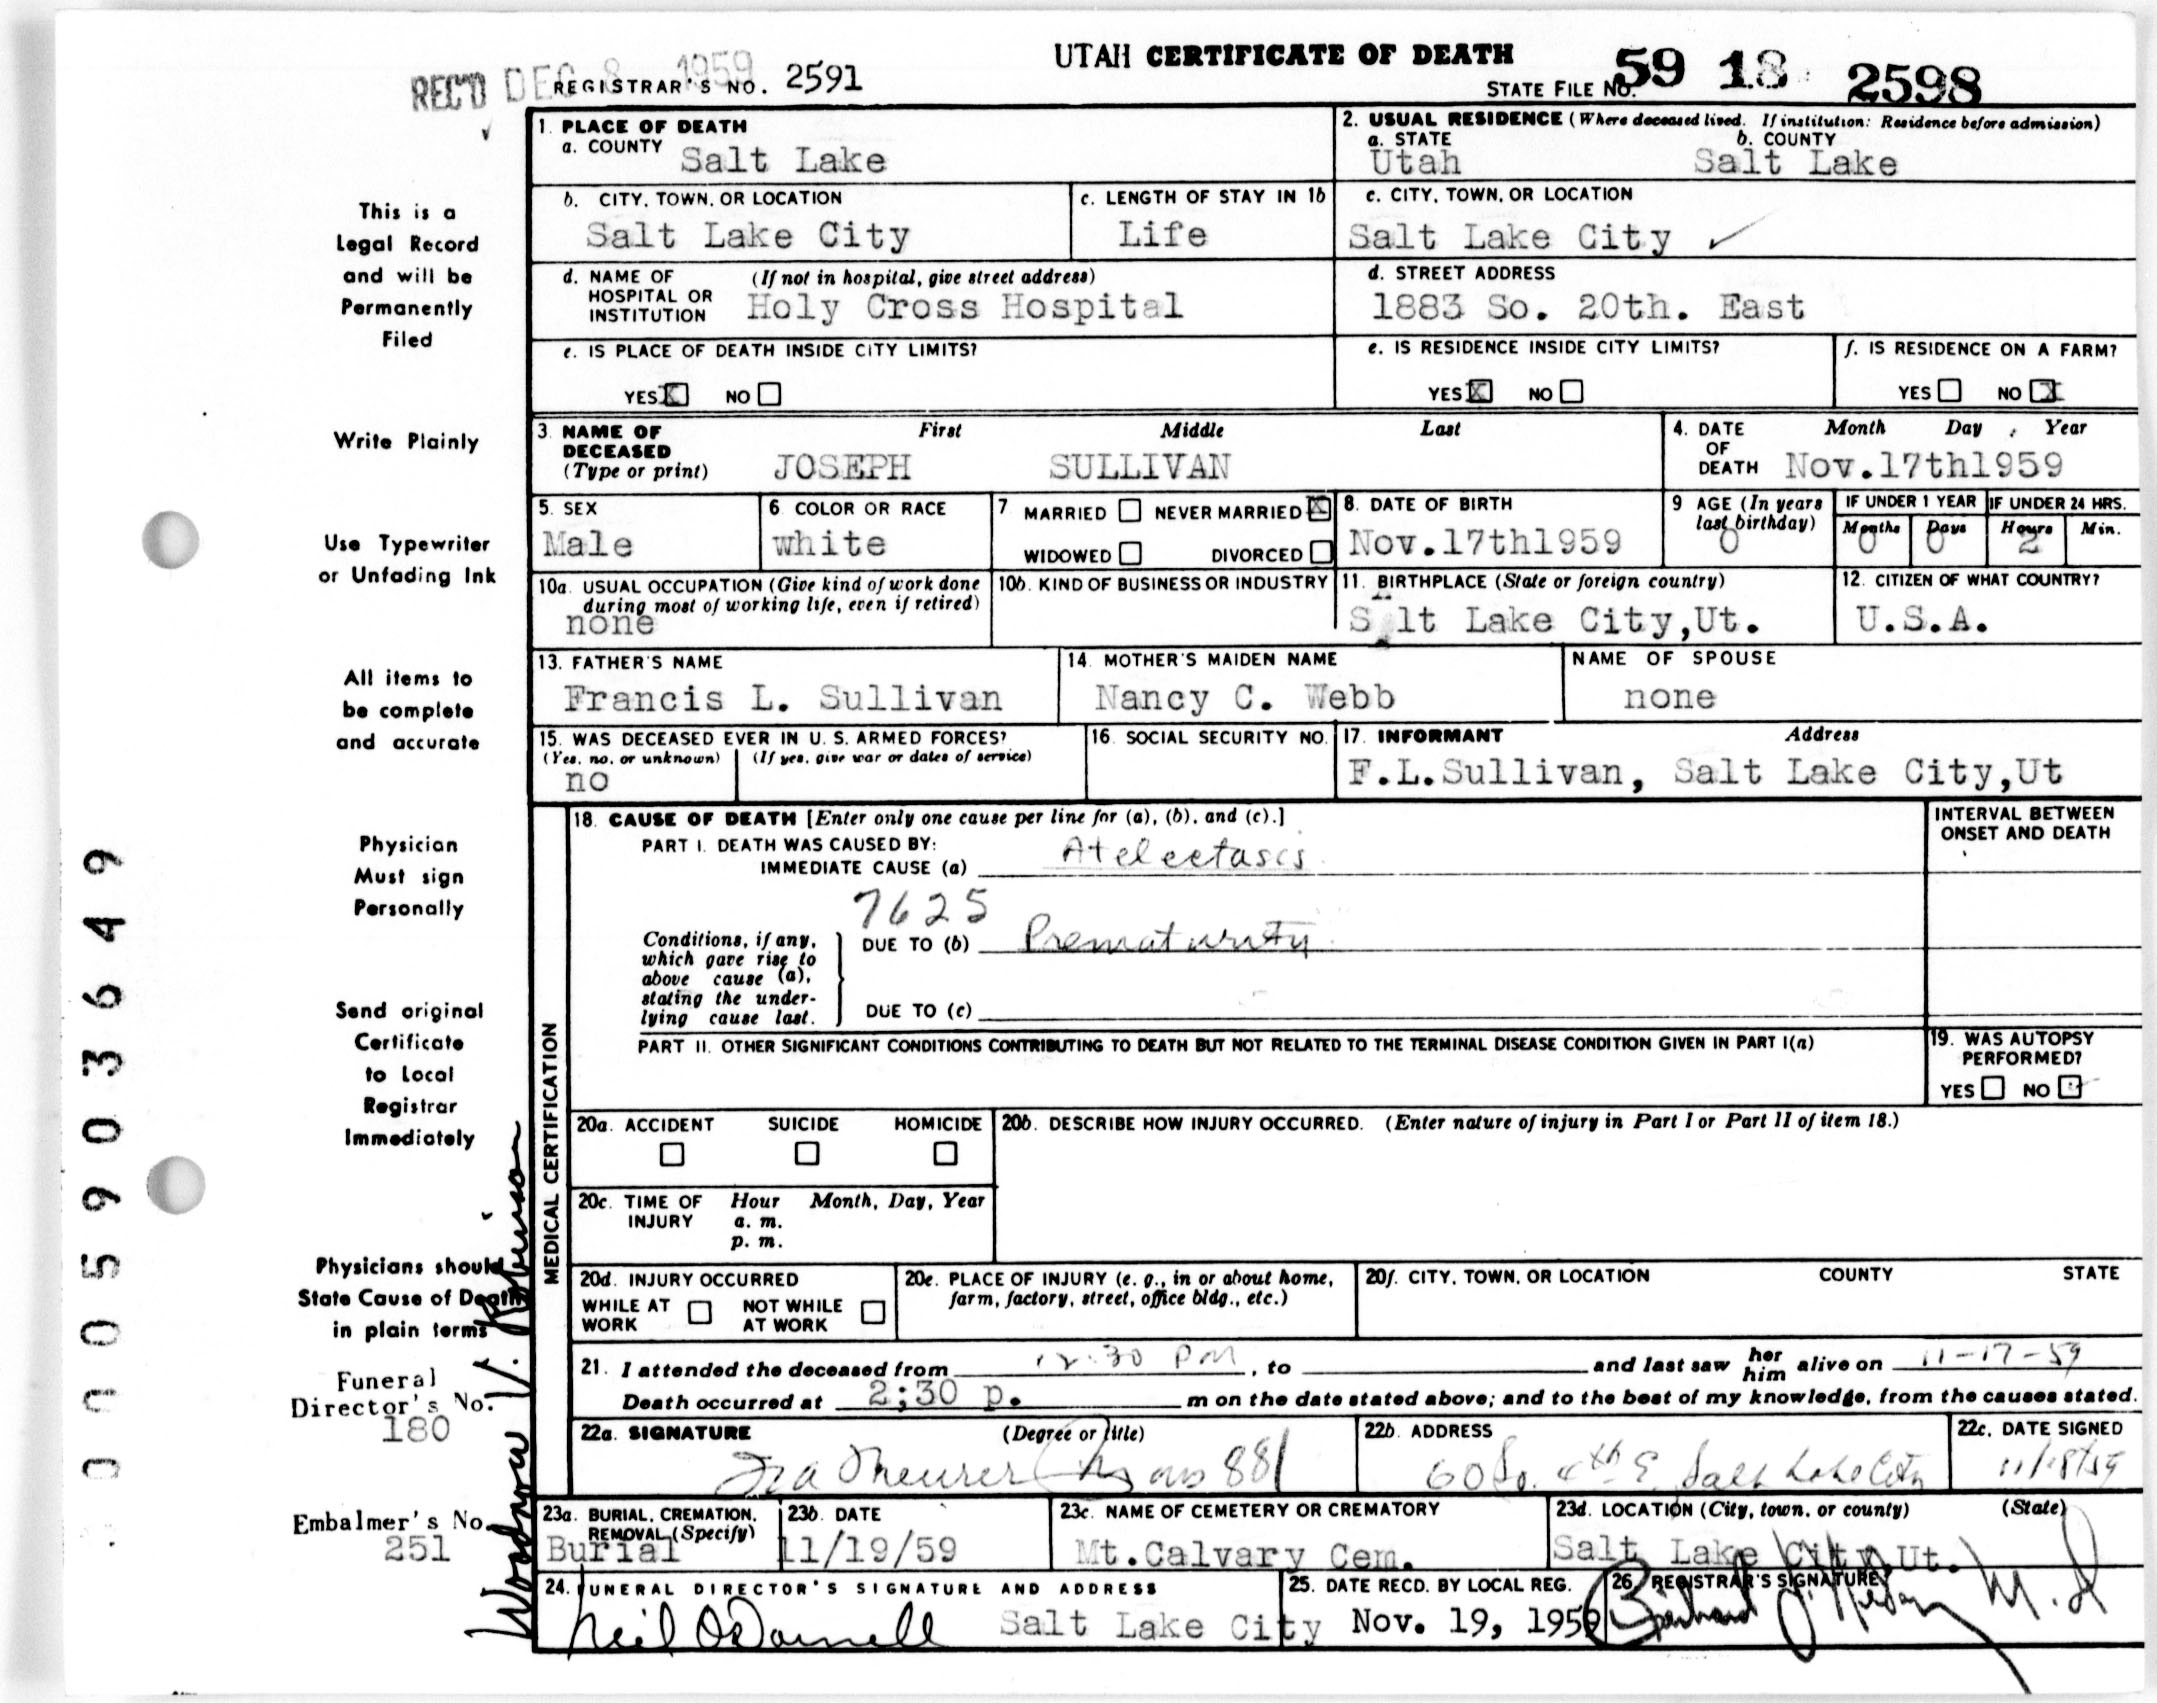 UTAH CERTIFICATE OF DEATH
REC'D DEC 8 1959
REGISTRAR'S NO. 2591
STATE FILE NO. 59 18 2598
1. PLACE OF DEATH
a. COUNTY Salt Lake
2. USUAL RESIDENCE (Where deceased lived. If institution: Residence before admission)
a. STATE Utah b. COUNTY Salt Lake
b. CITY, TOWN, OR LOCATION Salt Lake City
c. LENGTH OF STAY IN 1b Life
c. CITY, TOWN, OR LOCATION Salt Lake City
d. NAME OF HOSPITAL OR INSTITUTION (If not in hospital, give street address) Holy Cross Hospital
d. STREET ADDRESS 1883 So. 20th. East
e. IS PLACE OF DEATH INSIDE CITY LIMITS?
YES X NO
e. IS RESIDENCE INSIDE CITY LIMITS?
YES X NO
f. IS RESIDENCE ON A FARM?
YES NO X
3. NAME OF DECEASED (Type or print) First Middle Last
JOSEPH SULLIVAN
4. DATE OF DEATH Month Day Year
Nov.17th1959
5. SEX Male
6. COLOR OR RACE white
7. MARRIED NEVER MARRIED X
WIDOWED DIVORCED
8. DATE OF BIRTH Nov.17th1959
9 AGE (In years last birthday) 0
IF UNDER 1 YEAR Months 0 Days 0
IF UNDER 24 HRS. Hours 2 Min.
10a. USUAL OCCUPATION (Give kind of work done during most of working life, even if retired)
none
10b. KIND OF BUSINESS OR INDUSTRY
11. BIRTHPLACE (State or foreign country)
Salt Lake City,Ut.
12. CITIZEN OF WHAT COUNTRY?
U.S.A.
13. FATHER'S NAME
Francis L. Sullivan
14. MOTHER'S MAIDEN NAME
Nancy C. Webb
NAME OF SPOUSE
none
15. WAS DECEASED EVER IN U. S. ARMED FORCES?
(Yes, no, or unknown) (If yes, give war or dates of service)
no
16. SOCIAL SECURITY NO.
17. INFORMANT Address
F.L.Sullivan, Salt Lake City,Ut
MEDICAL CERTIFICATION
18. CAUSE OF DEATH [Enter only one cause per line for (a), (b), and (c).]
PART I. DEATH WAS CAUSED BY:
IMMEDIATE CAUSE (a) Atelectasis
7625
Conditions, if any, which gave rise to above cause (a), stating the underlying cause last.
DUE TO (b) Prematurity
DUE TO (c)
INTERVAL BETWEEN ONSET AND DEATH
PART II. OTHER SIGNIFICANT CONDITIONS CONTRIBUTING TO DEATH BUT NOT RELATED TO THE TERMINAL DISEASE CONDITION GIVEN IN PART I(a)
19. WAS AUTOPSY PERFORMED?
YES NO
20a. ACCIDENT SUICIDE HOMICIDE
20b. DESCRIBE HOW INJURY OCCURRED. (Enter nature of injury in Part I or Part II of item 18.)
20c. TIME OF INJURY Hour Month, Day, Year
a. m.
p. m.
20d. INJURY OCCURRED
WHILE AT WORK NOT WHILE AT WORK
20e. PLACE OF INJURY (e. g., in or about home, farm, factory, street, office bldg., etc.)
20f. CITY, TOWN, OR LOCATION COUNTY STATE
21. I attended the deceased from 12:30 PM, to and last saw her him alive on 11-17-59
Death occurred at 2;30 p. m on the date stated above; and to the best of my knowledge, from the causes stated.
22a. SIGNATURE (Degree or title)
881
22b. ADDRESS
60 So. 4th E. Salt Lake City
22c. DATE SIGNED
11/18/59
23a. BURIAL, CREMATION, REMOVAL (Specify)
Burial
23b. DATE
11/19/59
23c. NAME OF CEMETERY OR CREMATORY
Mt.Calvary Cem.
23d. LOCATION (City, town, or county) (State)
Salt Lake City,Ut.
24. FUNERAL DIRECTOR'S SIGNATURE AND ADDRESS
Neil O'Donnell Salt Lake City
25. DATE RECD. BY LOCAL REG.
Nov. 19, 1959
26. REGISTRAR'S SIGNATURE
M.D
This is a
Legal Record
and will be
Permanently
Filed
Write Plainly
Use Typewriter
or Unfading Ink
All items to
be complete
and accurate
Physician
Must sign
Personally
Send original
Certificate
to Local
Registrar
Immediately
Physicians should
State Cause of Death
in plain terms
Funeral
Director's No.
180
Embalmer's No.
251
Woodrow V. Robinson
000590 3649